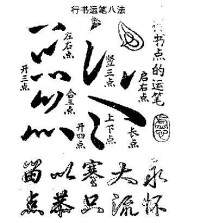 行书运笔八法
书点的运笔
左右点
开三点
合三点
竖三点
启右点
上下点
开四点
长点
永怀
大流
塞只
以恭
点